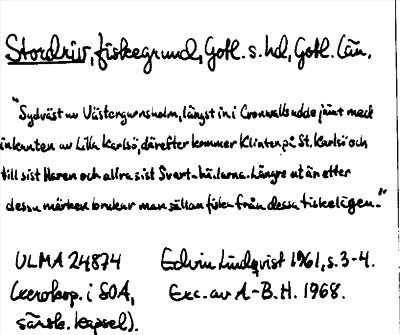 Stordriv, fiskegrund, Gotl. s. hd, Gotl. län.
"Sydväst av Västergarnsholm, längst in i Cronvalls udde jämt med
inkanten av Lilla Karlsö, därefter kommer Klinten på St. Karlsö och
till sist Haren och allra sist Svart-hällarna. Längre ut än efter
dessa märken brukar man sällan fiska från dessa fiskelägen."
ULMA 24874 Edvin Lindqvist 1961, s. 3-4.
(xerokop. i SOA, Exc. av A-B. H. 1968.
särsk. kapsel).